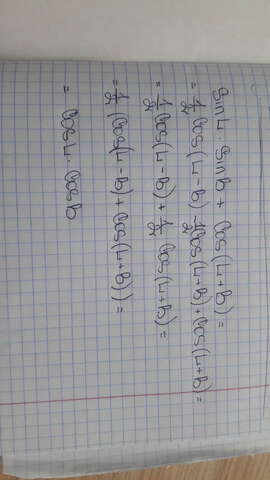 sin L · sin B + cos(L+B) =
= 1/2 cos(L-B) - 1/2 cos(L+B) + cos(L+B) =
= 1/2 cos(L-B) + 1/2 cos(L+B) =
= 1/2 (cos(L-B) + cos(L+B)) =
= cos L · cos B